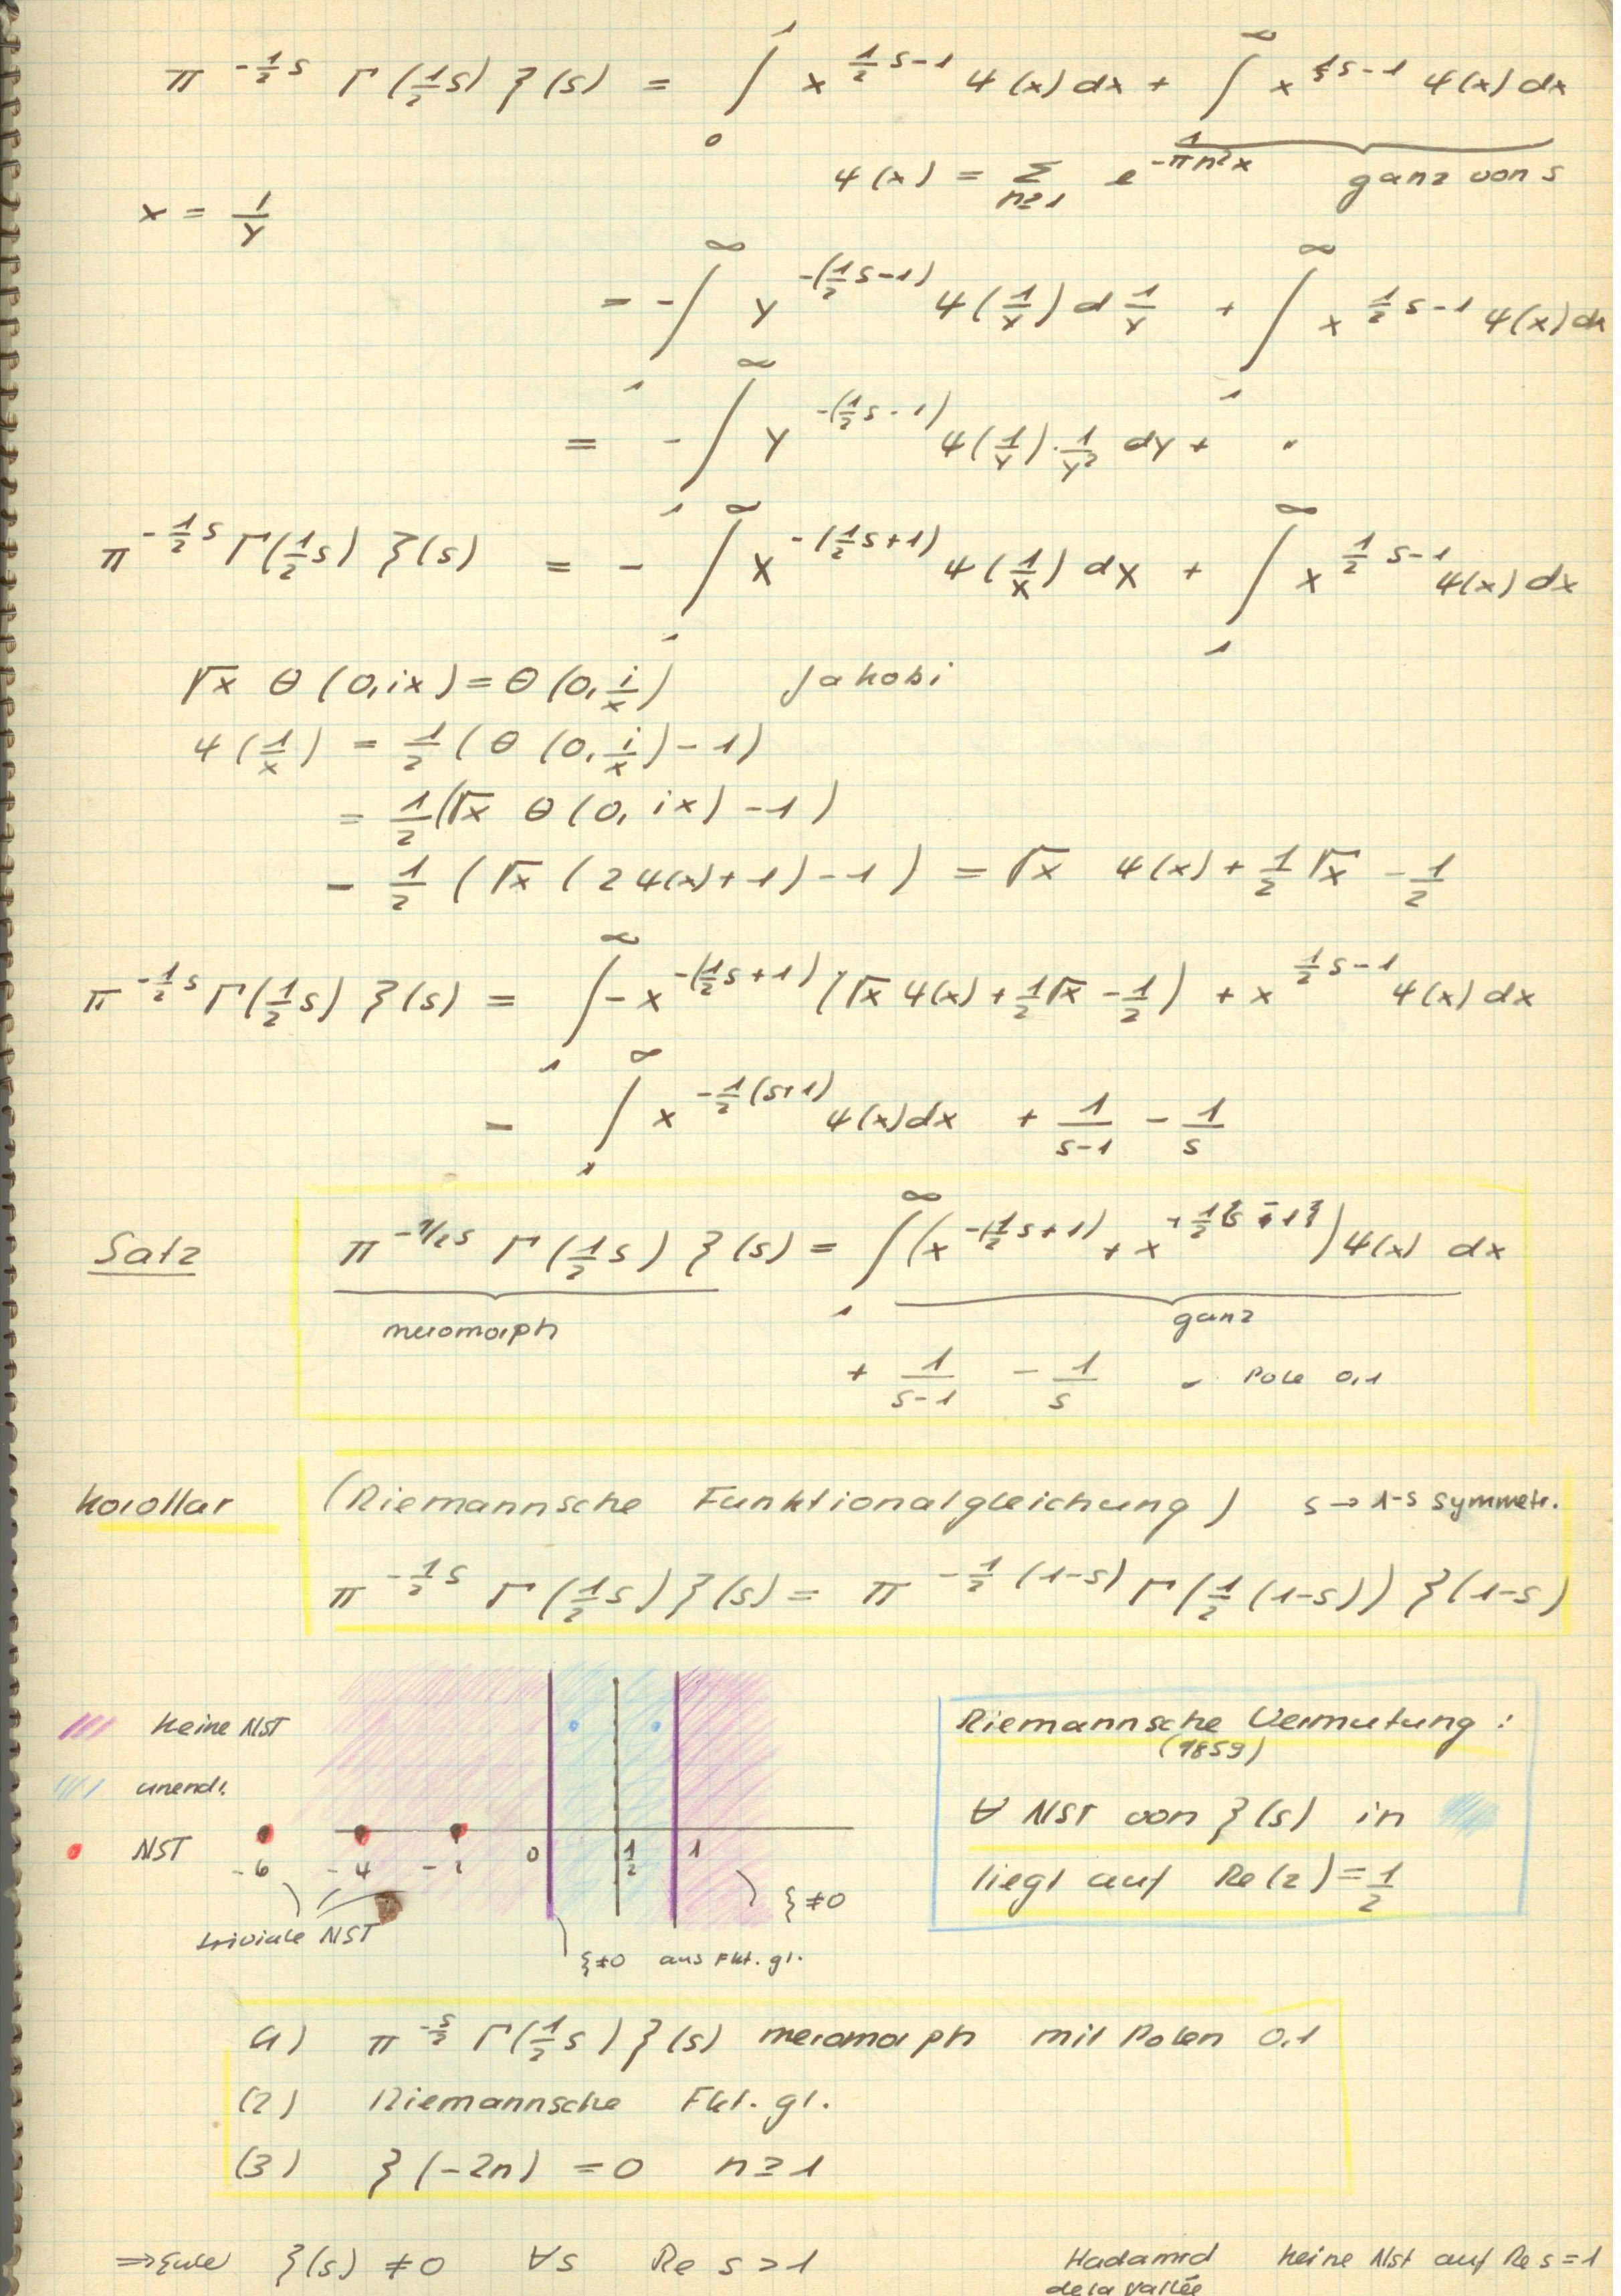 π^{-1/2 s} Γ(1/2 s) ζ(s) = ∫_0^1 x^{1/2 s-1} ψ(x) dx + ∫_1^∞ x^{1/2 s-1} ψ(x) dx
ψ(x) = Σ_{n≥1} e^{-πn²x} ganz von s
x = 1/y
= -∫_1^∞ y^{-(1/2 s-1)} ψ(1/y) d 1/y + ∫_1^∞ x^{1/2 s-1} ψ(x) dx
= -∫_1^∞ y^{-(1/2 s-1)} ψ(1/y) · 1/y² dy + "
π^{-1/2 s} Γ(1/2 s) ζ(s) = - ∫_1^∞ x^{-(1/2 s+1)} ψ(1/x) dx + ∫_1^∞ x^{1/2 s-1} ψ(x) dx
√x θ(0,ix) = θ(0, i/x) Jakobi
ψ(1/x) = 1/2 (θ(0, i/x) - 1)
= 1/2 (√x θ(0, ix) - 1)
= 1/2 (√x (2ψ(x)+1) - 1) = √x ψ(x) + 1/2 √x - 1/2
π^{-1/2 s} Γ(1/2 s) ζ(s) = ∫_1^∞ - x^{-(1/2 s+1)} (√x ψ(x) + 1/2 √x - 1/2) + x^{1/2 s-1} ψ(x) dx
= ∫_1^∞ x^{-1/2 (s+1)} ψ(x) dx + 1/(s-1) - 1/s
Satz π^{-1/2 s} Γ(1/2 s) ζ(s) = ∫_1^∞ (x^{-(1/2 s+1)} + x ) ψ(x) dx
meromorph ganz
+ 1/(s-1) - 1/s - Pole 0,1
Korollar (Riemannsche Funktionalgleichung) s → 1-s symmetr.
π^{-1/2 s} Γ(1/2 s) ζ(s) = π^{-1/2 (1-s)} Γ(1/2 (1-s)) ζ(1-s)
keine NST
unendl.
NST
-6 -4 -2 0 1/2 1
triviale NST
ζ≠0
ζ≠0 aus Fkt. gl.
Riemannsche Vermutung :
(1859)
∀ NST von ζ(s) in
liegt auf Re(z) = 1/2
(1) π^{-s/2} Γ(1/2 s) ζ(s) meromorph mit Polen 0,1
(2) Riemannsche Fkt. gl.
(3) ζ(-2n) = 0 n ≥ 1
⇒ Euler ζ(s) ≠ 0 ∀s Re s > 1
Hadamrd keine Nst auf Re s = 1
de la Vallée